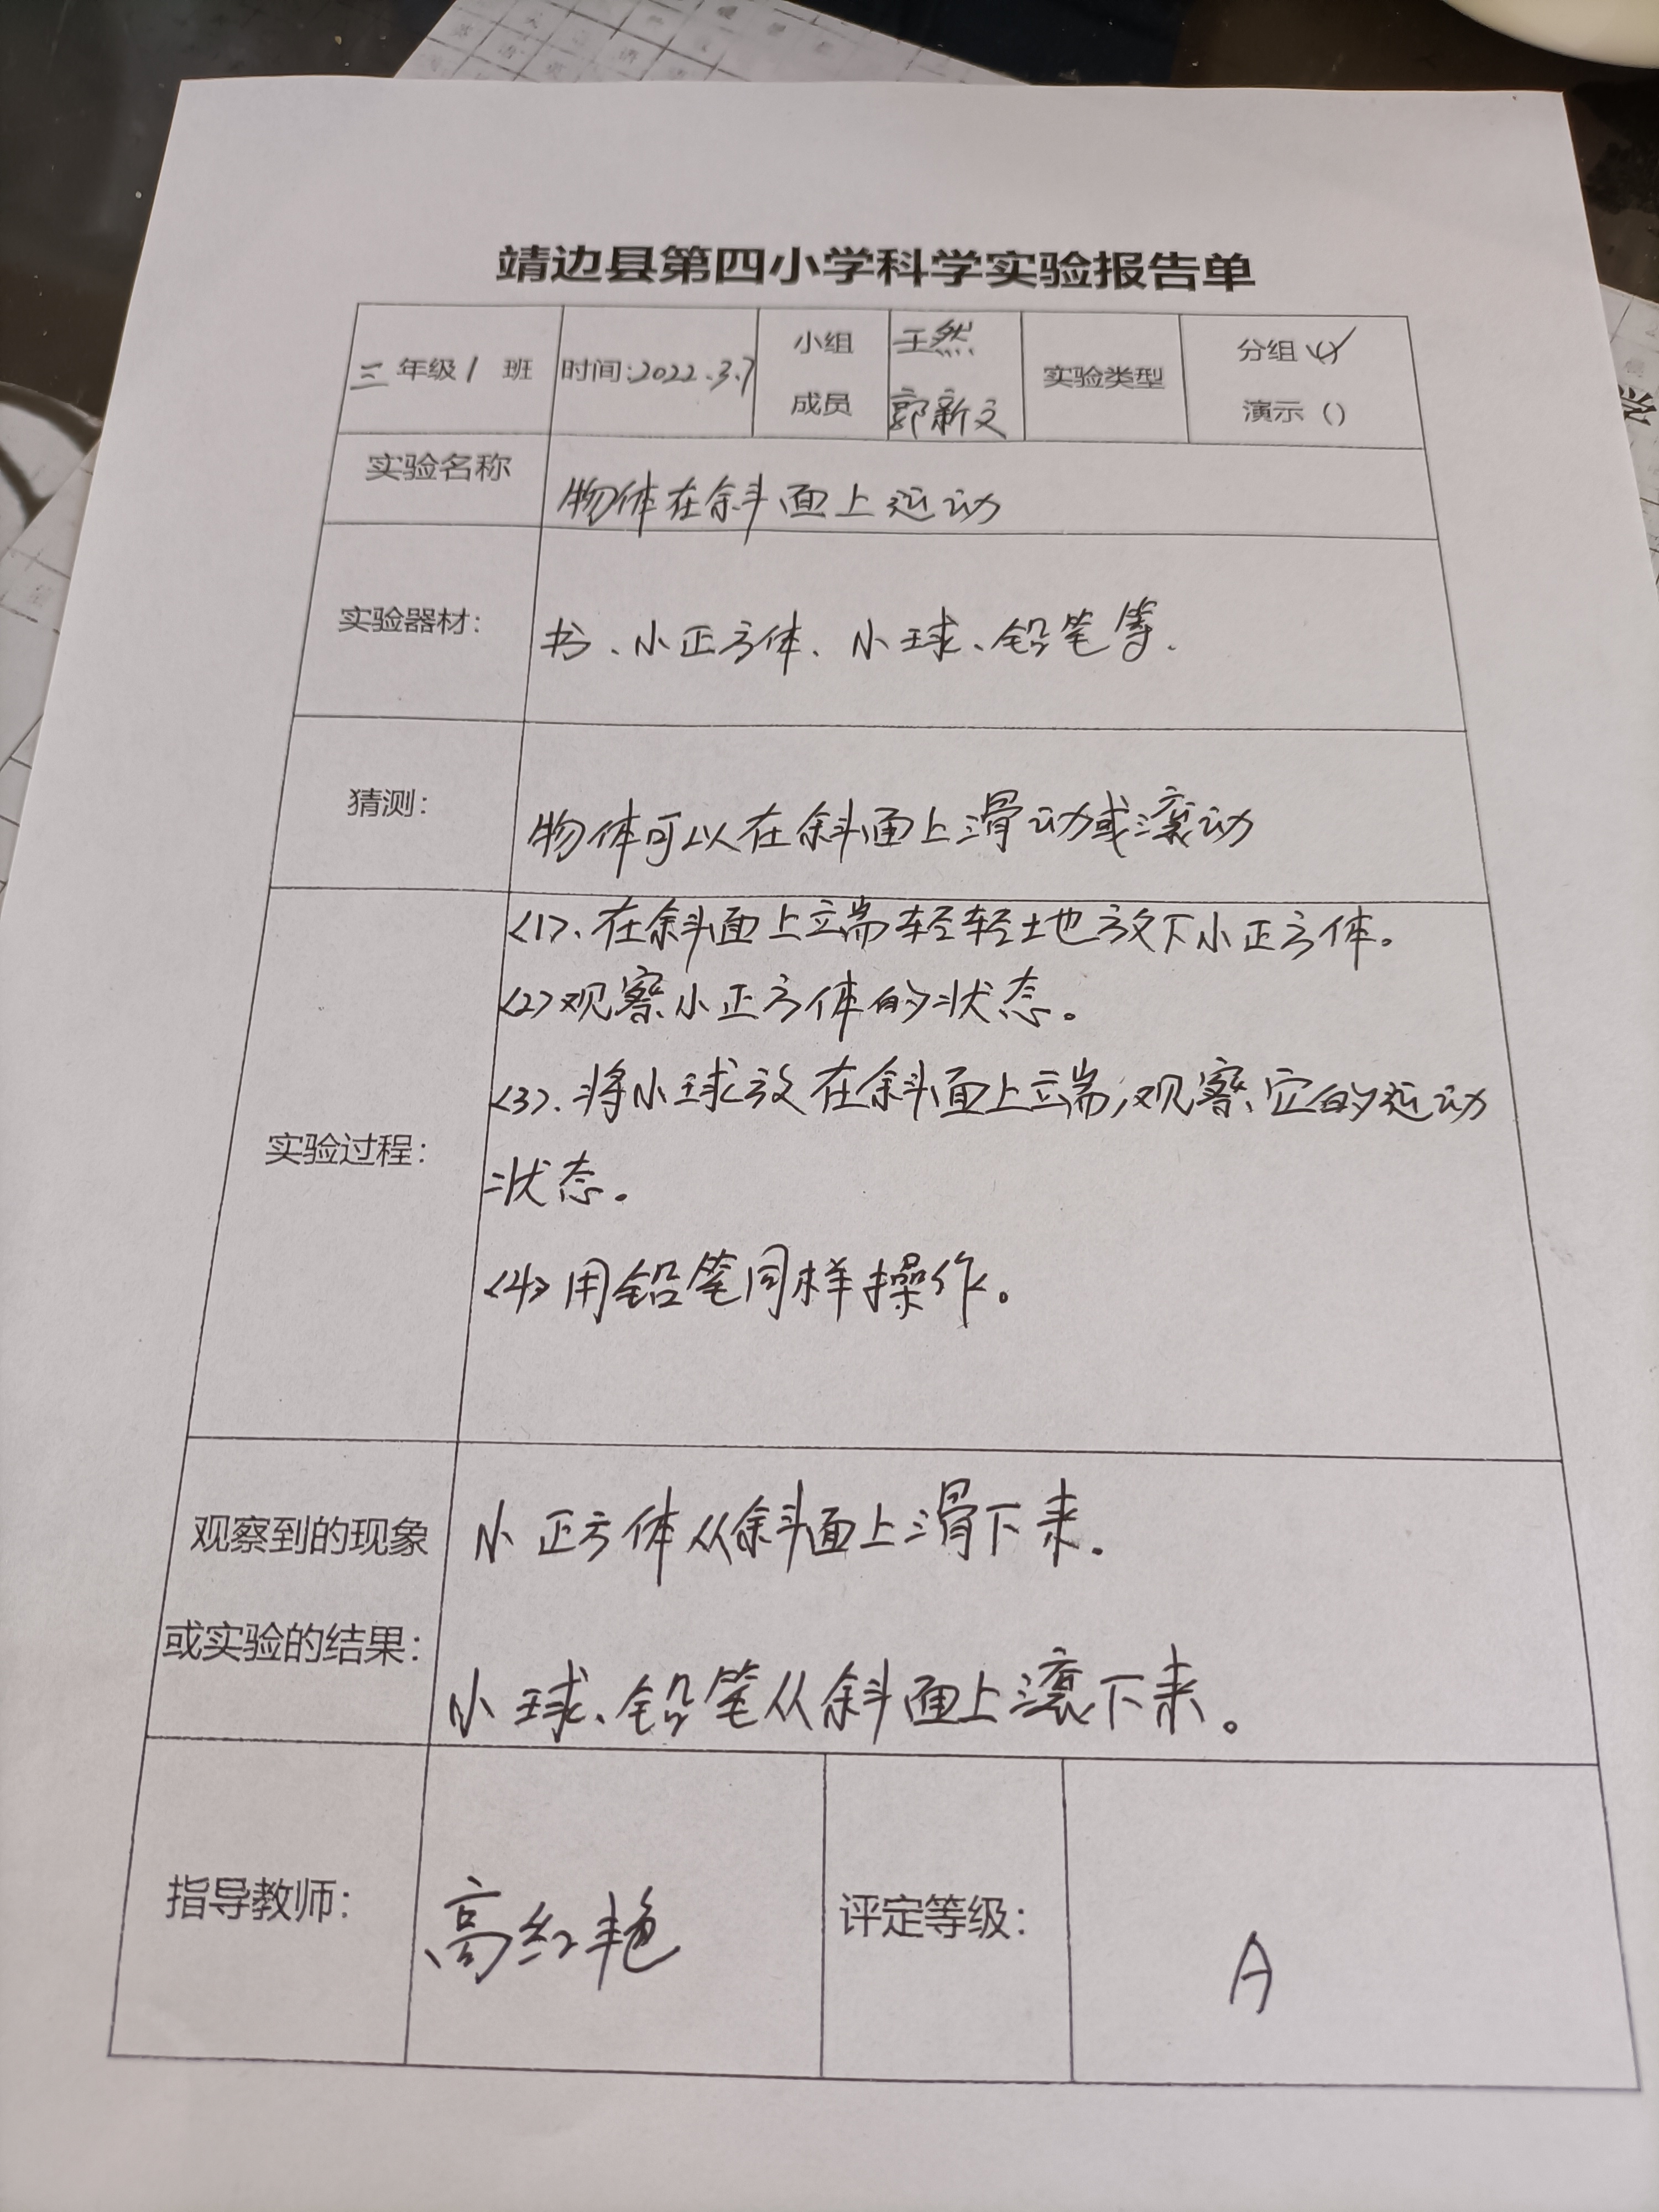 靖边县第四小学科学实验报告单
三年级1班 时间:2022.3.7 小组成员 王然 郭新文 实验类型 分组(√) 演示()
实验名称 物体在斜面上运动
实验器材: 书、小正方体、小球、铅笔等.
猜测: 物体可以在斜面上滑动或滚动
实验过程:
<1>、在斜面上端轻轻地放下小正方体。
<2>观察小正方体的状态。
<3>.将小球放在斜面上端,观察它的运动
状态。
<4>用铅笔同样操作。
观察到的现象
或实验的结果:
小正方体从斜面上滑下来.
小球、铅笔从斜面上滚下来。
指导教师: 高红艳 评定等级: A